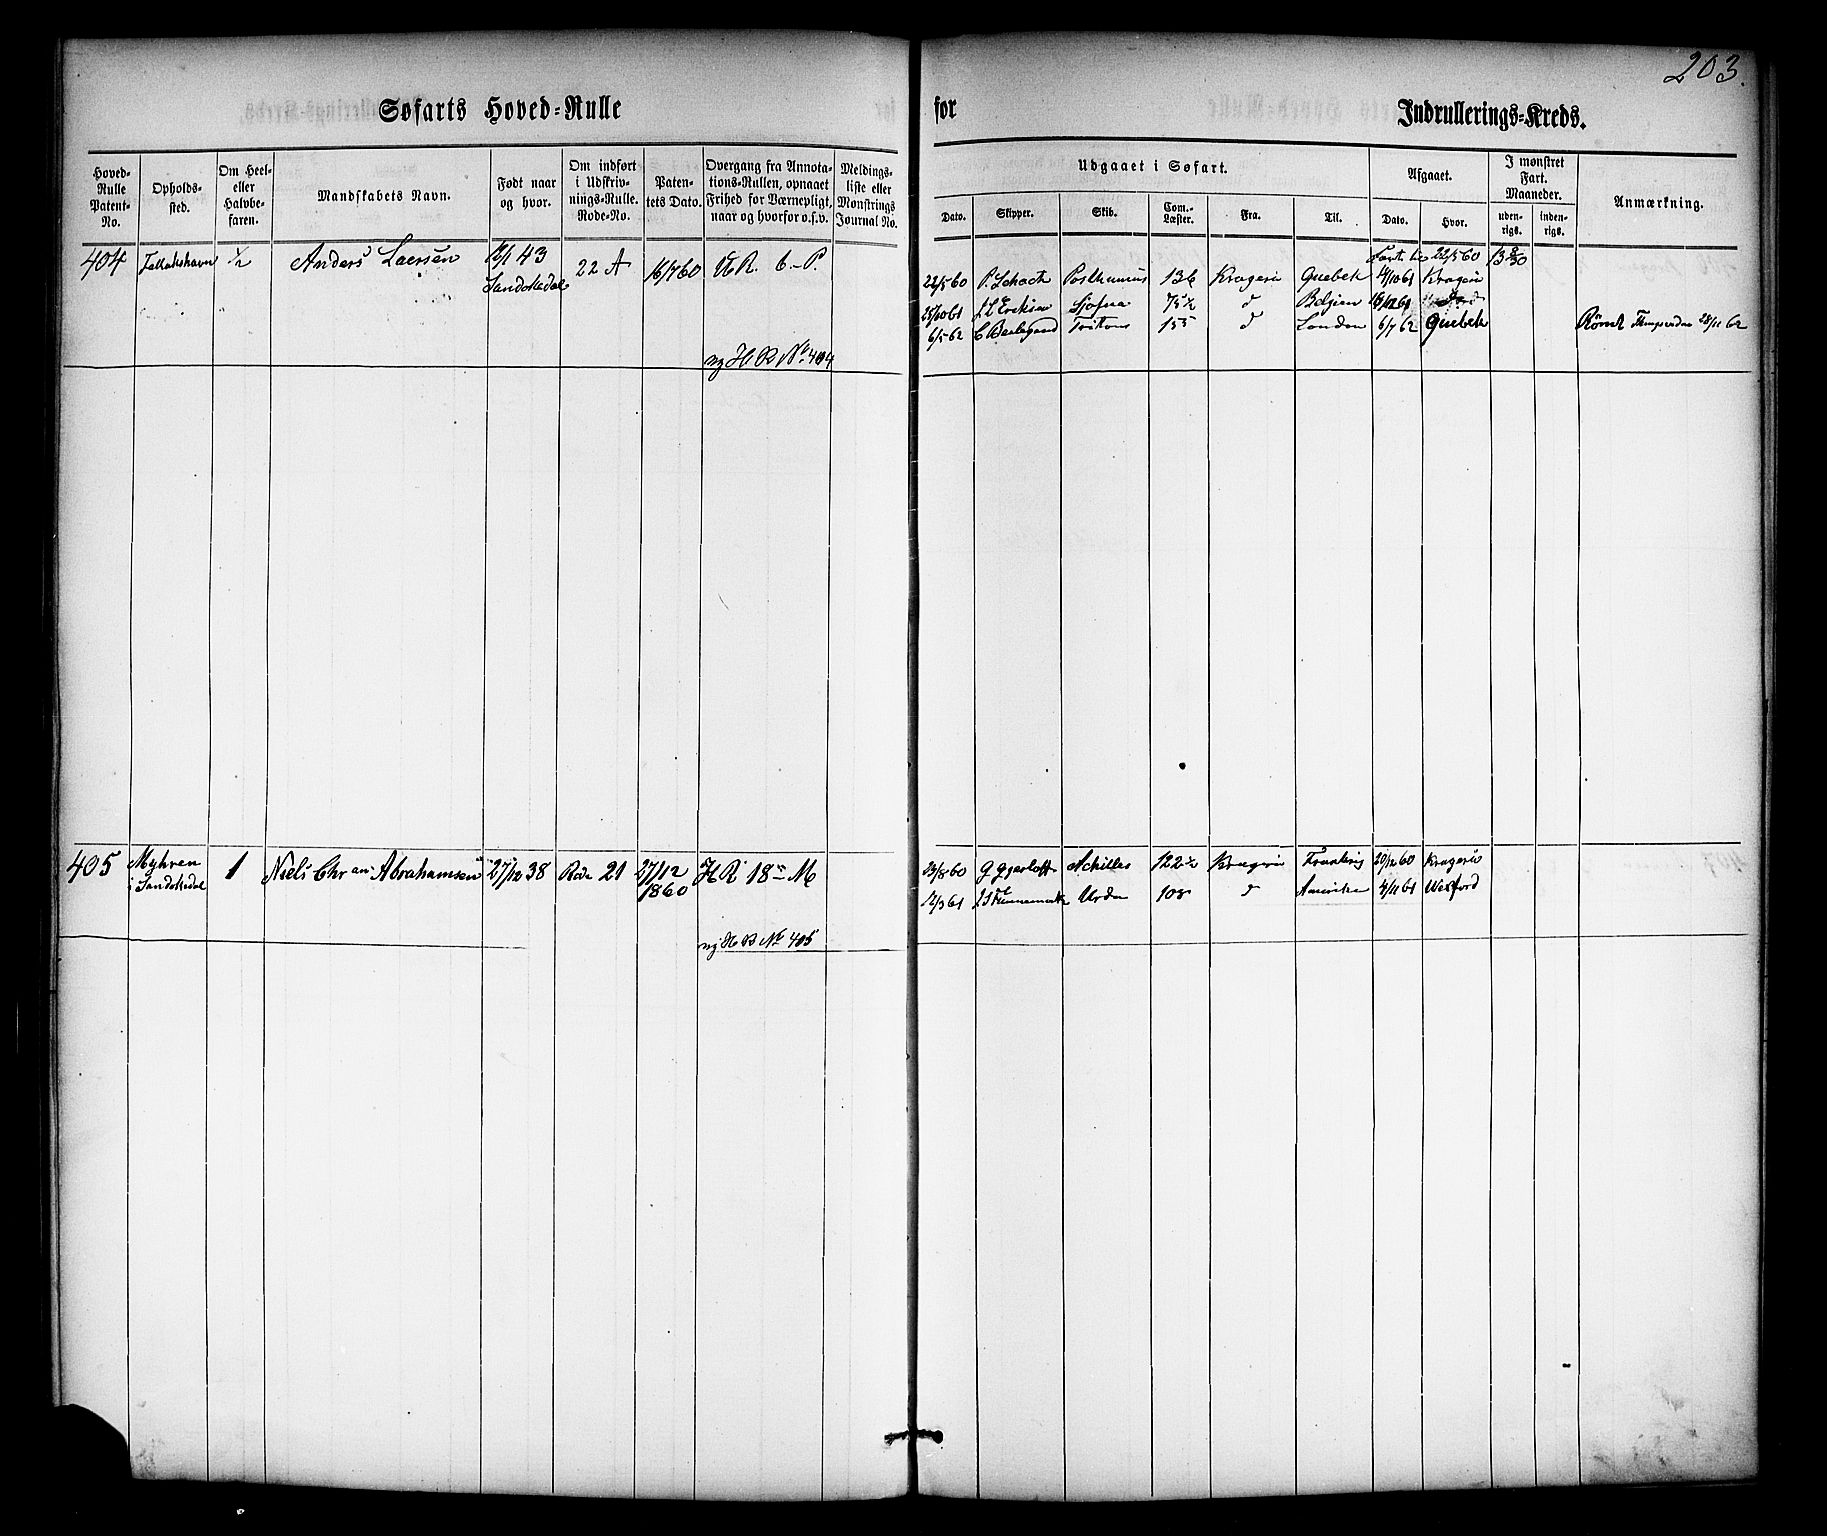 203.
Søfarts Hoved=Rulle for Indrullerings=Kreds.
Hoved-Rulle Patent-No.
Opholds-sted.
Om Heel- eller Halvbe-faren.
Mandskabets Navn.
Født naar og hvor.
Om indført i Udskriv-nings-Rulle. Rode-No.
Paten-tets Dato.
Overgang fra Annota-tions-Rullen, opnaaet Frihed for Værnepligt, naar og hvorfor o.s.v.
Meldings-liste eller Mønstrings Journal No.
Udgaaet i Søfart.
Dato. Skipper. Skib. Com.-Læster. Fra. Til.
Afgaaet.
Dato. Hvor.
I mønstret Fart. Maaneder.
uden-rigs. inden-rigs.
Anmærkning.
404 ½ Anders Laersen 43 22 A 16/7 60 U R. 6-P.
Sandøkedal
22/5 60
22/5 60 P. Schack Posthumus 136 Kragerø Quebek 4/10 61 Kragerø
25/10 61 Eriksen Sjofna 75½ d Belgien
6/5 62 Tritons 155 d London 6/7 62 Quebek Rømt 28/11 62
ny H R No. 404
405 Myhren i Sandøkedal 1 Niels Chr an Abrahamsen 27/12 38 Rode 21 27/12 1860 H R 18 M
23/8 60 Achilles 122½ Kragerø 20/12 60 Kragerø
12/3 61 Urda 108 d Amerika 4/11 61 Wexford
ny H R No 405